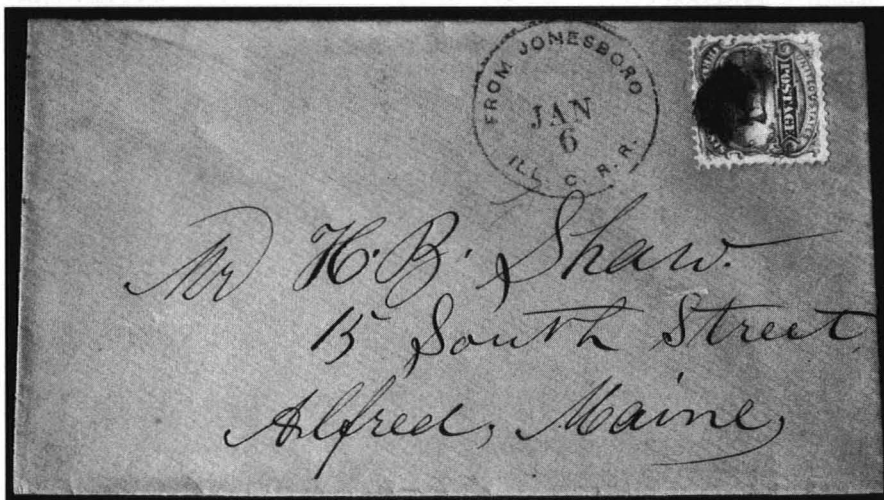 FROM JONESBORO
JAN
6
ILL. C. R. R.
UNITED STATES
POSTAGE
Mr H. B. Shaw.
15 South Street,
Alfred, Maine,